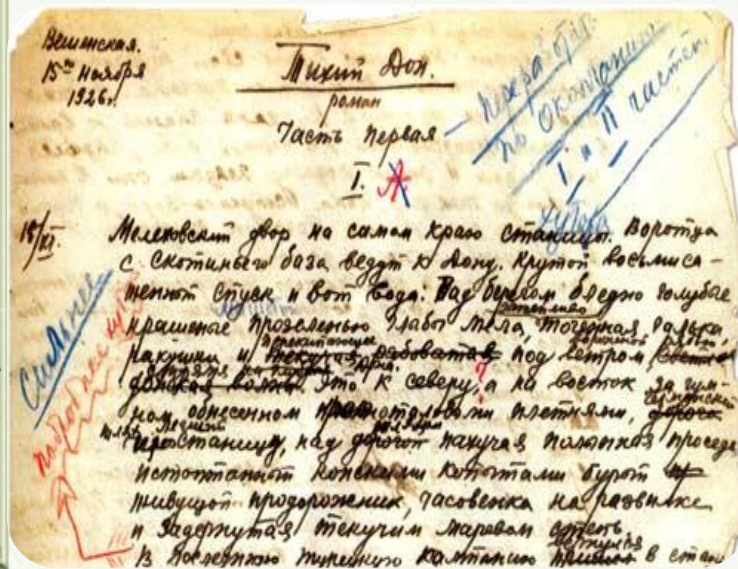 Вешенская.
15го ноября
1926г.
Тихий Дон.
роман
Часть первая
I.
переработать
по окончании
I и II частей.
хутора
15/XI.
Мелеховский двор на самом краю станицы. Воротца
с скотиньего база ведут к Дону. Крутой восьмиса-
женный спуск и вот вода. Над берегом бледно голубые
крашеные прозеленью глыбы мела, галька
ракушки и под ветром
Это к северу, а на восток за гум-
ном, обнесенном плетнями,
над дорогой пахучая полынная проседь
истоптанный конскими копытами бурый
живущой придорожник, часовенка на развилке
и задернутая текучим маревом степь
В последнюю турецкую кампанию в стан
Сильнее
подробнее